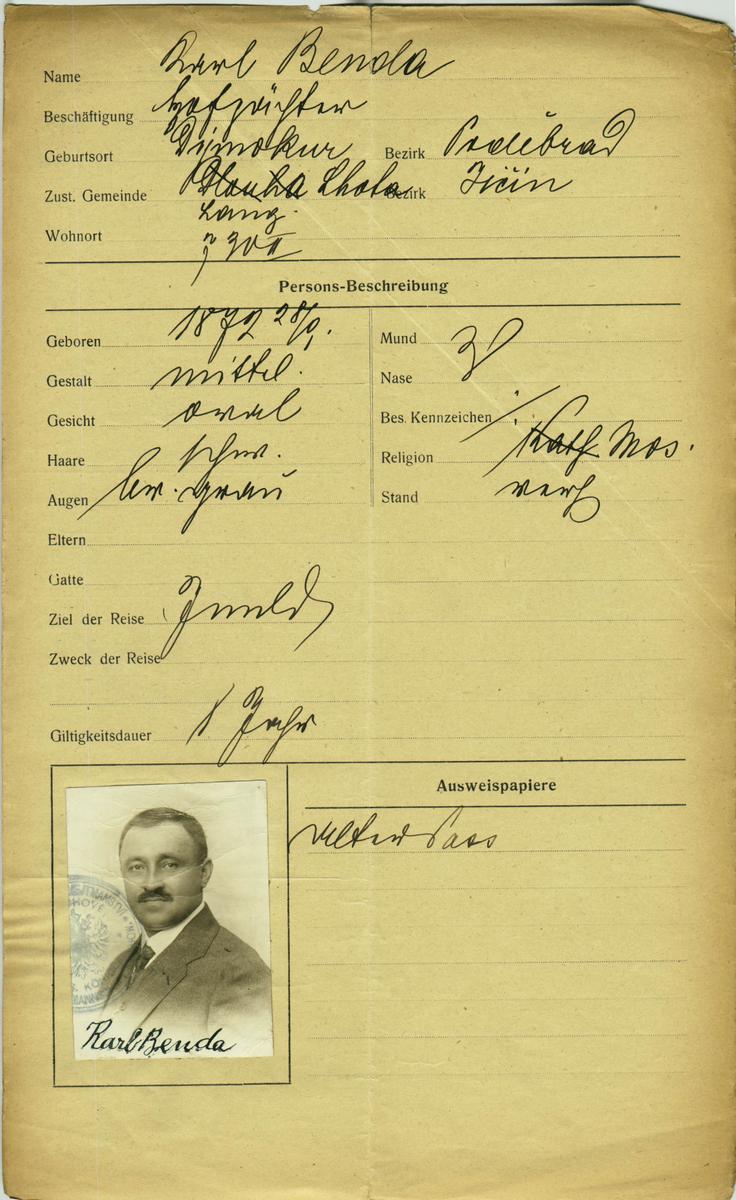 Name Karl Benda
Beschäftigung Hofpächter
Geburtsort Dimokur Bezirk Podĕbrad
Zust. Gemeinde Dlouha Lhota Bezirk Jičin
Lang.
Wohnort 30 II
Persons-Beschreibung
Geboren 1872 28/
Mund
Gestalt mittel.
Nase
Gesicht oval
Bes. Kennzeichen
Haare schw.
Religion Kath Mos.
Augen br. grau
Stand verh
Eltern
Gatte
Ziel der Reise Inld
Zweck der Reise
Giltigkeitsdauer 1 Jahr
Ausweispapiere
alter Pass
Karl Benda